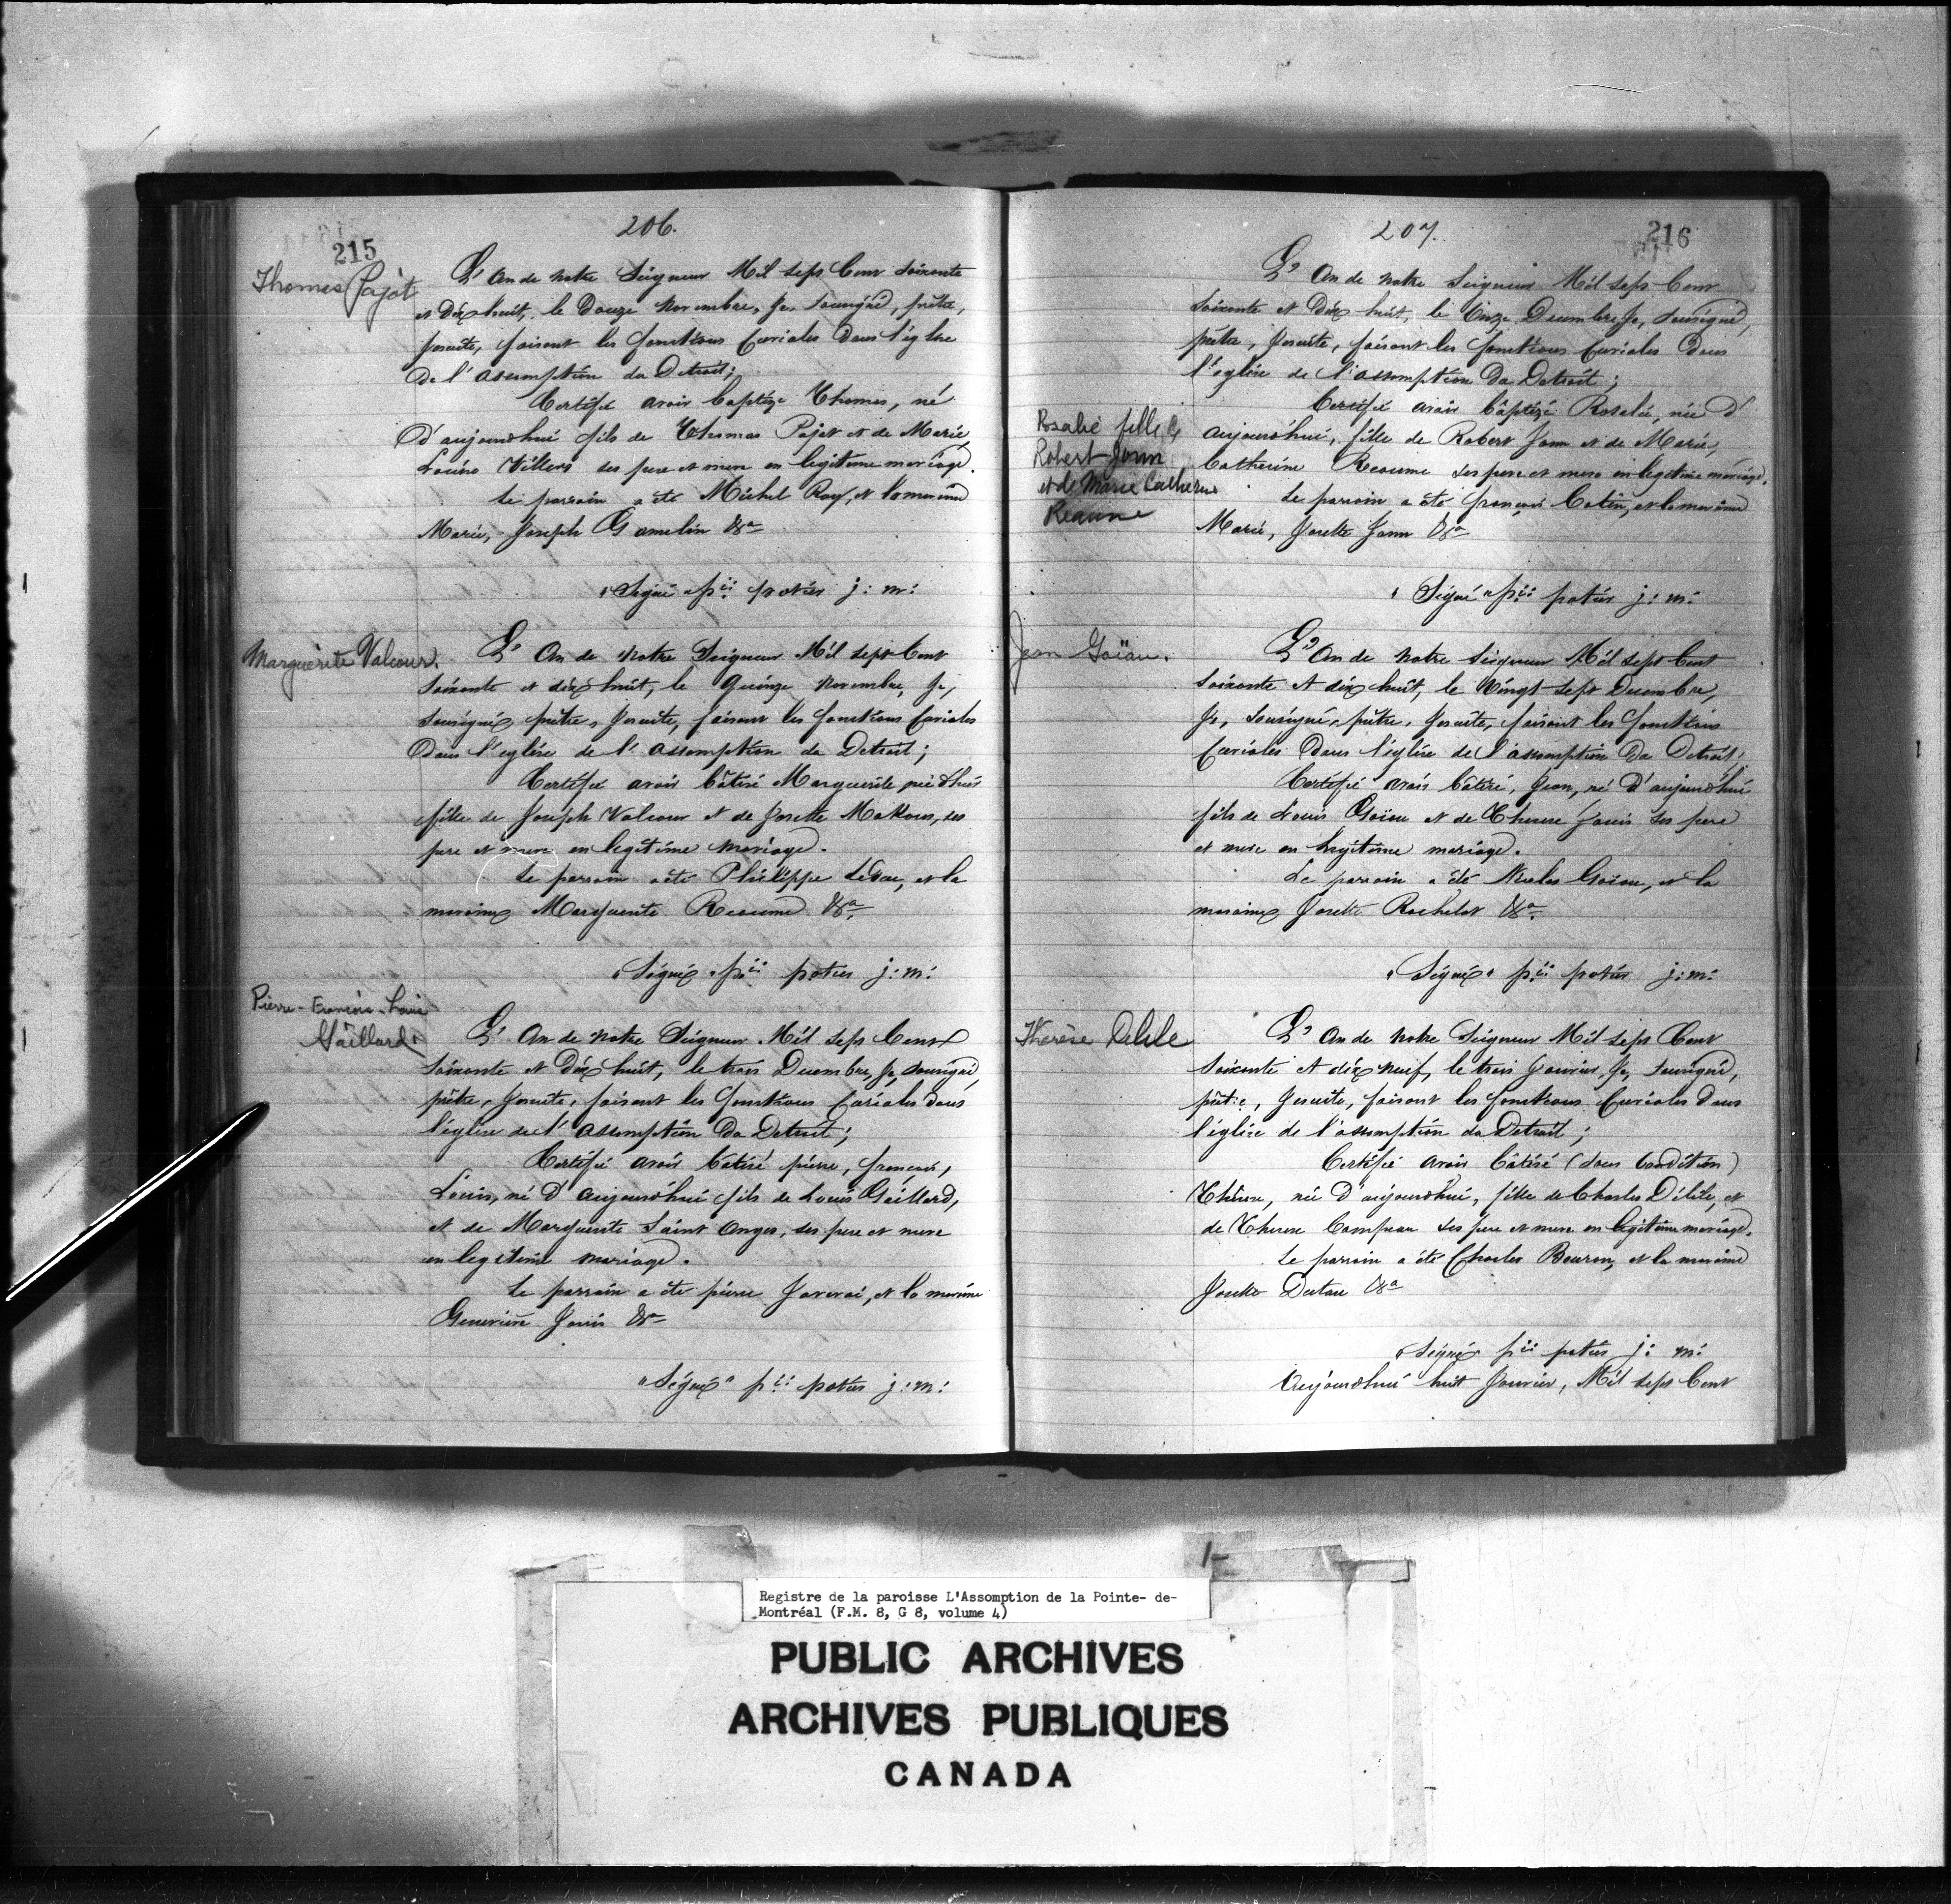 206.
215
Thomas Pajot
L'An de notre Seigneur Mil sept Cent soixante
et dix huit, le Douze Novembre, Je, soussigné, prêtre,
Jesuite, faisant les fonctions Curiales dans l'église
De l'assomption du Detroit;
Certifie avoir baptizé Thomas, né
D'aujourdhui fils de Thomas Pajot et de Marie
Louise Villers ses pere et mere en legitime mariage.
Le parrain a été Michel Roy, et la maraine
Marie, Joseph Gamelin &a
"Signé" pre: potier j: m:
Marguerite Valcour.
L'An de Notre Seigneur Mil sept Cent
soixante et dix huit, le Quinze Novembre, Je,
soussigné prêtre, Jesuite, faisant les fonctions Curiales
Dans l'eglise de l'assomption du Detroit;
Certifie avoir bâtisé Marguerite née d'hier
fille de Joseph Valcour et de Josette ses
pere et mere en legitime mariage.
Le parrain a été Philippe Leduc, et la
maraine Marguerite Reaume &a
"Signé" pre: potier j: m:
Pierre-François-Louis
Gaillard.
L'An de Notre Seigneur Mil sept Cent
soixante et Dix huit, le trois Decembre, Je, soussigné,
prêtre, Jesuite, faisant les fonctions Curiales dans
l'église de l'assomption du Detroit;
Certifie avoir batisé pierre, françois,
Louis, né D'aujourdhui fils de Louis Gaillard,
et de Marguerite Saint Onges, ses pere et mere
en legitime mariage.
Le parrain a été pierre et la maraine
Genevieve Janis &a
"Signé" pre: potier j: m:
207.
216
L'An de Notre Seigneur Mil sept Cent
soixante et Dix huit, le Onze Decembre, Je, soussigné,
prêtre, Jesuite, faisant les fonctions Curiales dans
l'eglise de l'assomption du Detroit;
Rosalie fille de
Robert Jann
et de Marie Catherine
Reaume
Certifie avoir bâptizé Rosalie, née d'
aujourd'hui, fille de Robert Jann et de Marie,
Catherine Reaume ses pere et mere en legitime mariage.
Le parrain a été françois Cotin, et la maraine
Marie, Josette Jann &a
"Signé" pre: potier j: m:
Jean Goïau.
L'An de Notre Seigneur Mil sept Cent
soixante et dix huit, le Vingt-sept Decembre,
Je, soussigné, prêtre, Jesuite, faisant les fonctions
Curiales Dans l'église de l'assomption du Detroit;
Certifie avoir bâtisé, Jean, né D'aujourdhui
fils de Louis Goïau et de Therese Janis ses pere
et mere en legitime mariage.
Le parrain a été Nicolas Goïau, et la
maraine Josette Rochelot &a
"Signé" pre: potier j: m:
Therèse Delile
L'An de Notre Seigneur Mil sept Cent
soixante et dix neuf, le trois Janvier, Je, soussigné,
prêtre, Jesuite, faisant les fonctions Curiales dans
l'église de l'assomption du Detroit;
Certifie avoir bâtisé (sous condition)
Thérese, née D'aujourdhui, fille de Charles Délile, et
de Therese Campeau ses pere et mere en legitime mariage.
Le parrain a été Charles Beuron, et la maraine
Josette Dutau &a
"Signé" pre: potier j: m:
Aujourdhui huit Janvier, Mil sept Cent
Registre de la paroisse L'Assomption de la Pointe- de-
Montréal (F.M. 8, G 8, volume 4)
PUBLIC ARCHIVES
ARCHIVES PUBLIQUES
CANADA